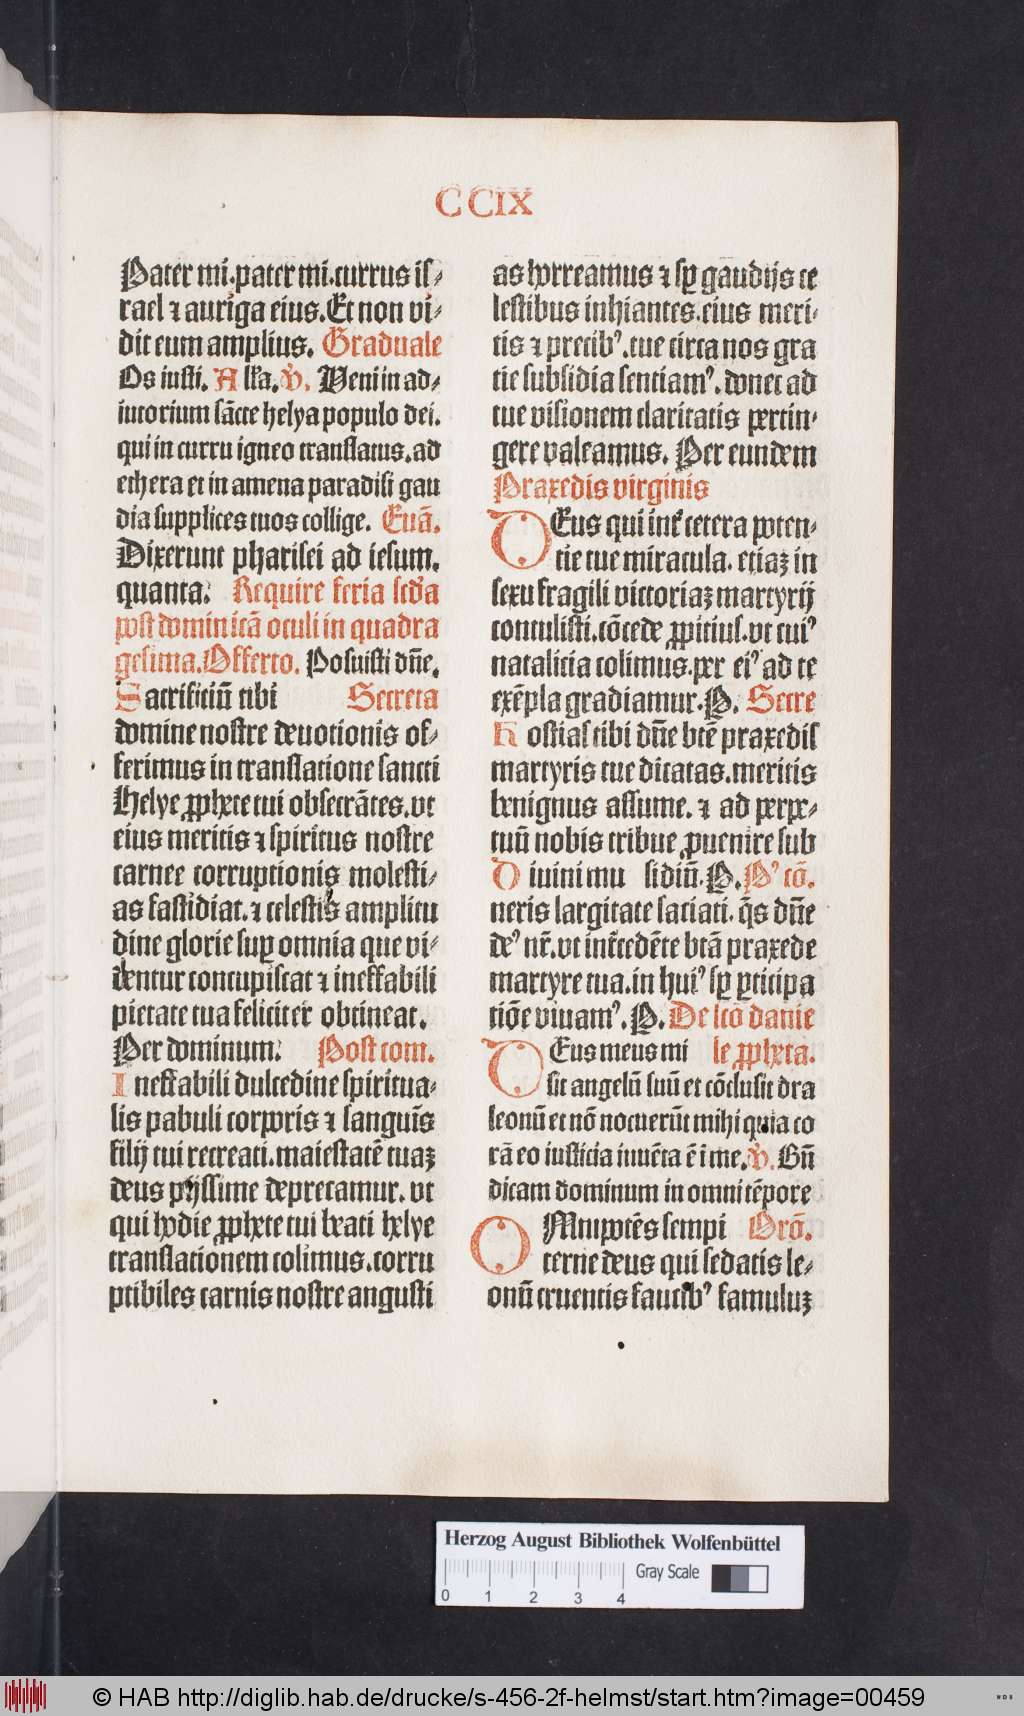 CCIX
Pater mi.pater mi.currus is⸗
rael ⁊ auriga eius.Et non vi⸗
dit eum amplius. Graduale
Os iusti. Alľa. ℣. Veni in ad⸗
iutorium sācte helya populo dei.
qui in curru igneo translatus.ad
ethera et in amena paradisi gau
dia supplices tuos collige. Euā.
Dixerunt pharisei ad iesum.
quanta: Require feria scďa
post dominicā oculi in quadra
gesima.Offerto. Posuisti dn̄e.
Sacrificiū tibi Secreta
domine nostre deuotionis of⸗
ferimus in translatione sancti
Helye ꝓphete tui obsecrātes.vt
eius meritis ⁊ spiritus nostre
carnee corruptionis molesti⸗
as fastidiat.⁊ celestis amplitu
dine glorie suꝑ omnia que vi⸗
dentur concupiscat ⁊ ineffabili
pietate tua feliciter obtineat.
Per dominum: Post com.
Ineffabili dulcedine spiritua⸗
lis pabuli corporis ⁊ sanguīs
filij tui recreati.maiestatē tuaꝫ
deus pijssime deprecamur.vt
qui hodie ꝓphete tui beati helye
translationem colimus.corru
ptibiles carnis nostre angusti
as horreamus ⁊ sꝑ gaudijs ce
lestibus inhiantes.eius meri⸗
tis ⁊ precibꝰ.tue circa nos gra
tie subsidia sentiamꝰ.donec ad
tue visionem claritatis pertin⸗
gere valeamus. Per eundem
Praxedis virginis
DEus qui int̉ cetera poten⸗
tie tue miracula. etiaꝫ in
sexu fragili victoriaꝫ martyrij
contulisti.cōcede ꝓpicius.vt cuiꝰ
natalicia colimus.per eiꝰ ad te
exēpla gradiamur.P. Secre
Hostias tibi dn̄e btē praxedis
martyris tue dicatas.meritis
benignus assume. ⁊ ad perpe⸗
tuū nobis tribue ꝓuenire sub
Diuini mu sidiū.P. Pꝰ cō.
neris largitate saciati. q̄s dn̄e
deꝰ nr̄.vt int̉cedēte btā praxede
martyre tua.in huiꝰ sꝑ ꝑticipa
tiōe viuamꝰ.P. De scō danie
DEus meus mi le ꝓpheta.
sit angelū suū et cōclusit ora
leonū et nō nocuerūt mihi quia co
rā eo iusticia inuēta ē ī me.℣. Bn̄
dicam dominum in omni tēpore
OMnipotēs sempi Orō.
terne deus qui sedatis le⸗
onū cruentis faucibꝰ famuluꝫ
Herzog August Bibliothek Wolfenbüttel
Gray Scale
0 1 2 3 4
© HAB http://diglib.hab.de/drucke/s-456-2f-helmst/start.htm?image=00459